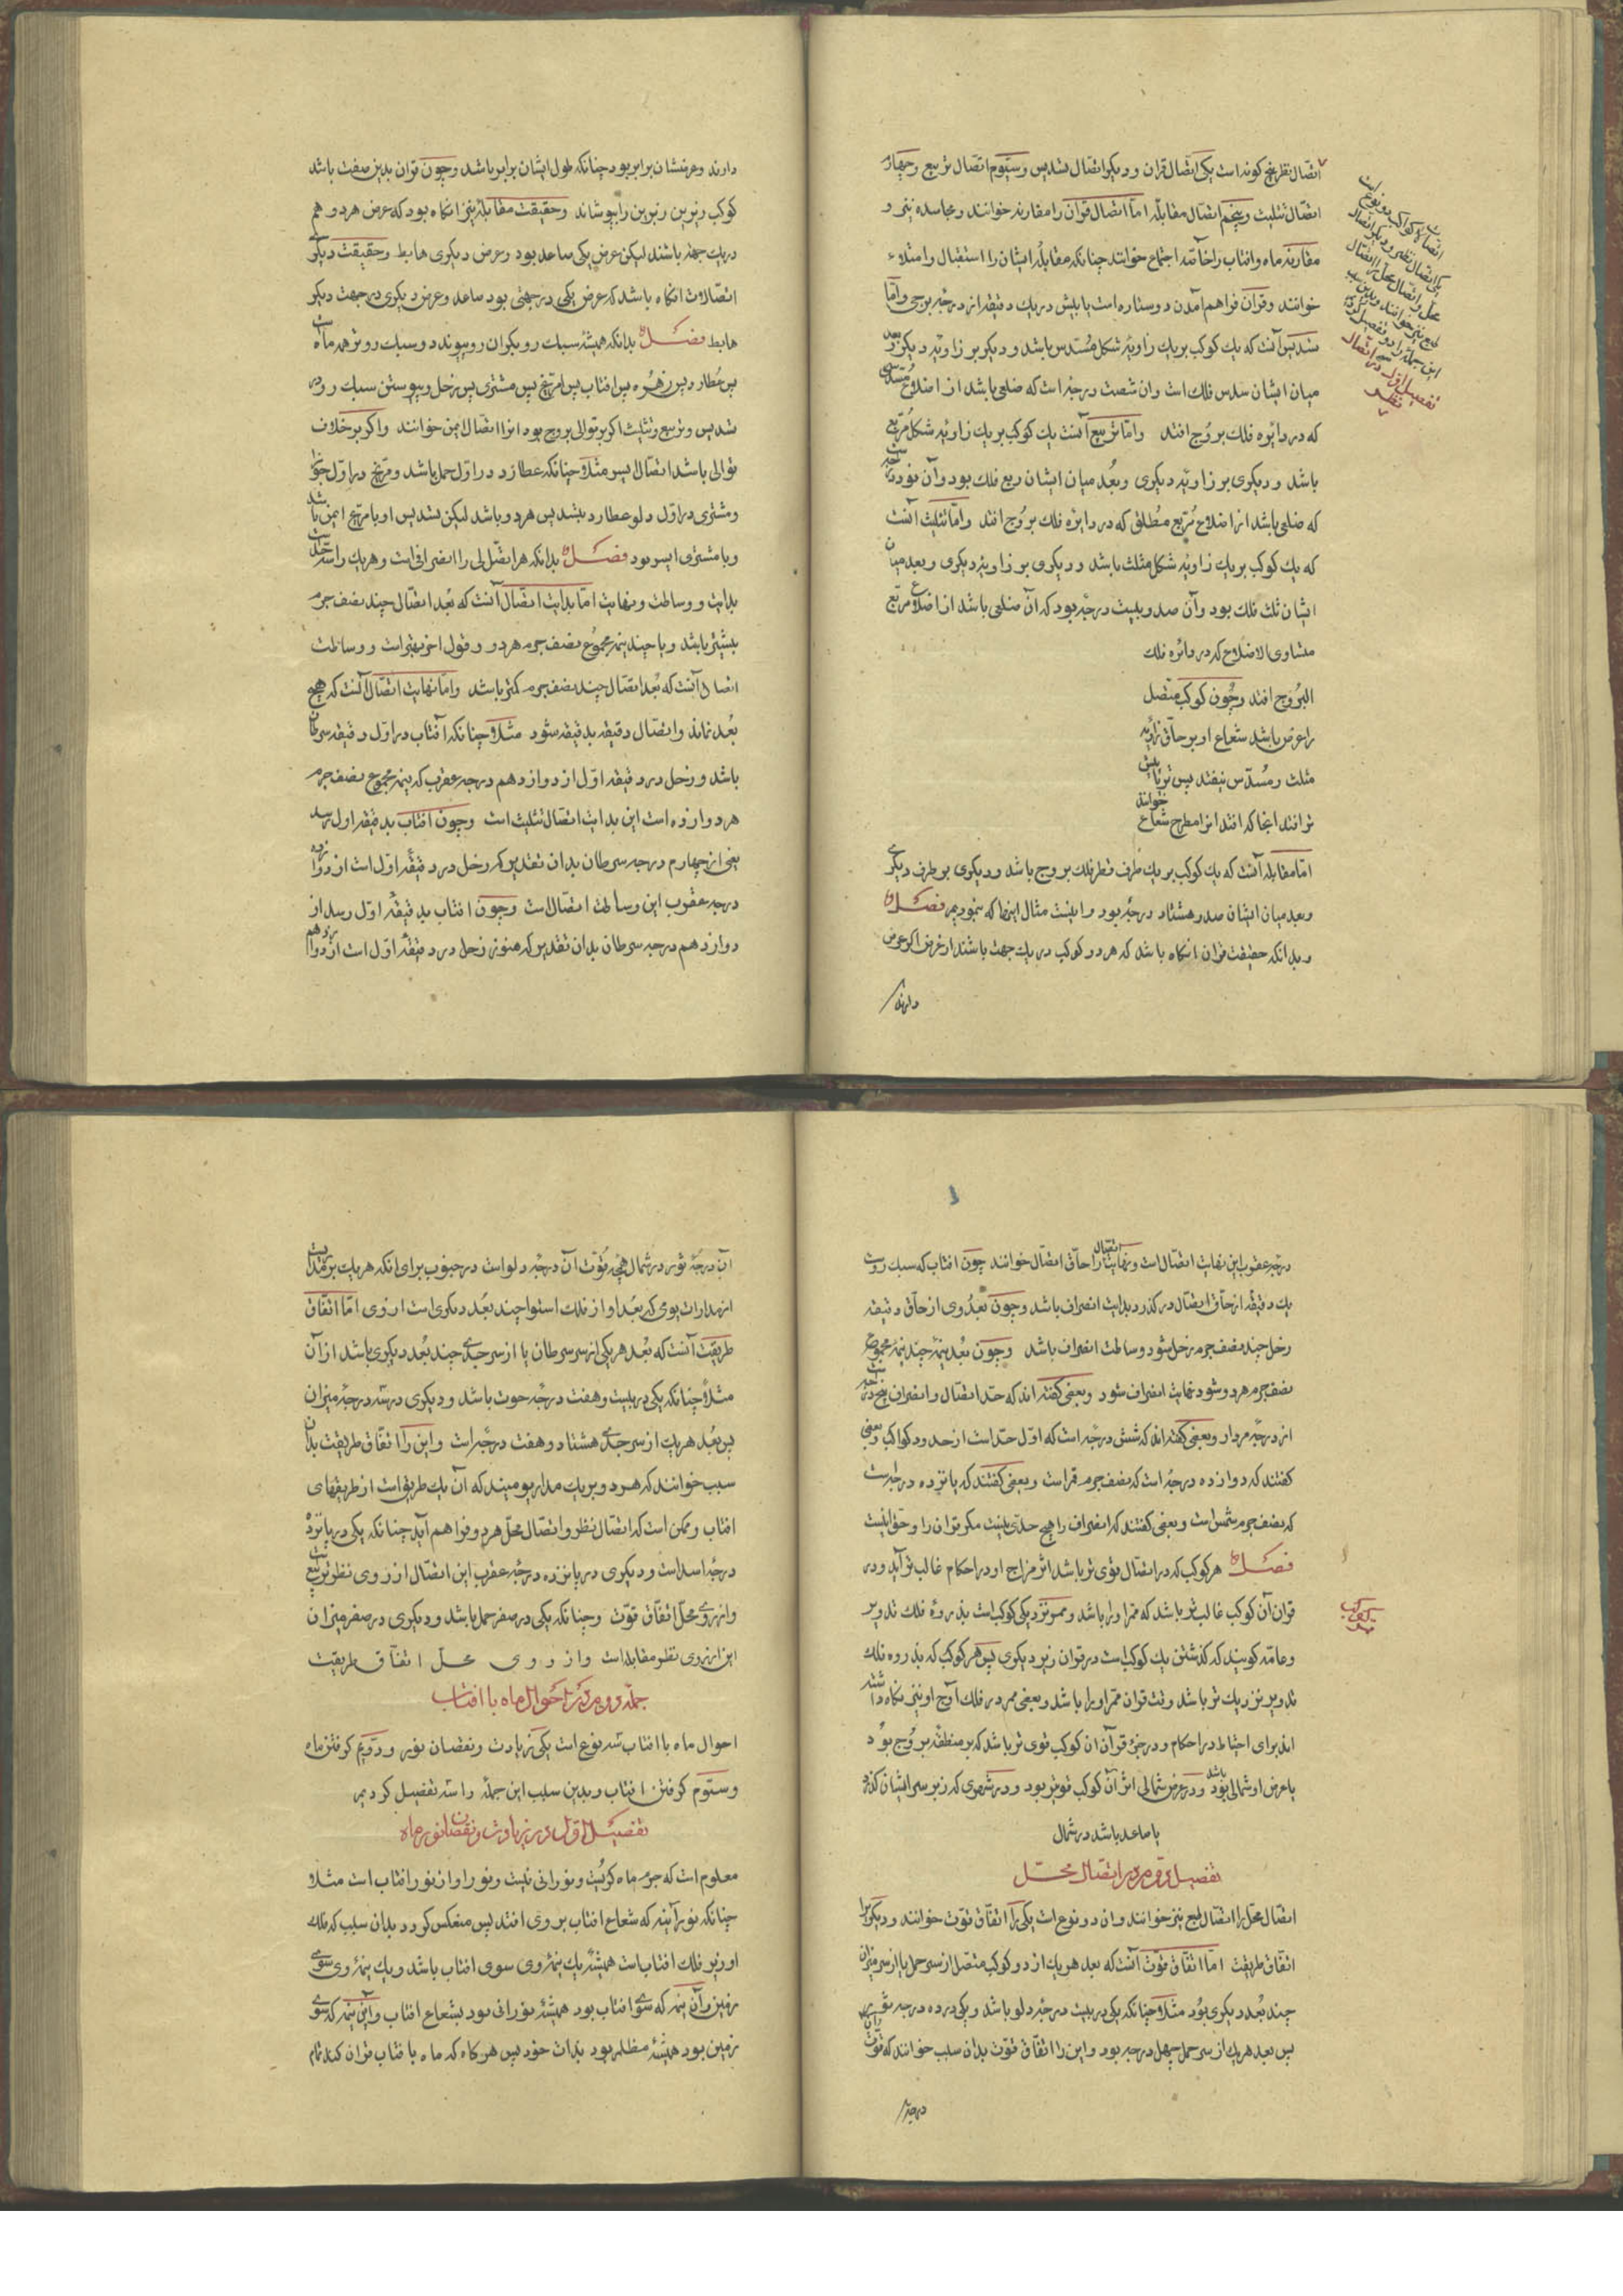 اتصال نظر پنج کونه است یکی اتصال قران و دیکر اتصال تسدیس و سیوم اتصال تربیع و چهارم
اتصال تثلیث و پنجم اتصال مقابله اما اتصال قران را مقارنه خوانند و مجاسده نیز و
مقارنه ماه و افتاب را خاصة اجتماع خوانند چنانکه مقابلۀ ایشان را استقبال و امتلاء
خوانند و قران فراهم آمدن دو ستاره است یا بیش در یک دقیقه از درجۀ برجی و اما
تسدیس آنست که یک کوکب بر یک زاویۀ شکل مسدس باشد و دیکر بر زاویۀ دیکر و بعد
میان ایشان سدس فلک است و ان شصت درجه است که ضلعی باشد از اضلاع مسدسی
که در دایره فلک بروج افتد و اما تربیع آنست یک کوکب بر یک زاویه شکل مربع
باشد و دیکری بر زاویۀ دیکری و بعد میان ایشان ربع فلک بود و آن نود درجه است
که ضلعی باشد از اضلاع مربع مطلق که در دایره فلک بروج افتد و اما تثلیث آنست
که یک کوکب بر یک زاویۀ شکل مثلث باشد و دیکری بر زاویۀ دیکری و بعد میان
ایشان ثلث فلک بود و آن صد و بیست درجه بود که آن ضلعی باشد از اضلاع مربع
متساوی الاضلاع که در دائره فلک
البروج افتد و چون کوکب متصل
را عرض باشد شعاع او بر حاق زاویه
مثلث و مسدس نیفتد پس تر یا پیش
تر افتد انجا که افتد انرا مطرح شعاع خوانند
اما مقابله آنست که یک کوکب بر یک طرف قطر فلک بروج باشد و دیکری بر طرف دیکری
و بعد میان ایشان صد و هشتاد درجه بود و اینست مثال اینها که نمودیم فصل
و بدانکه حقیقت قران انکاه باشد که هر دو کوکب در یک جهت باشند از عرض اکر عرض
دارند
اتصالات کواکب دو نوعست
یکی اتصال نظر و دیکر اتصال
محل و اتصال محل را اتصال
طبع نیز خوانند و بدین سبب
این جمله را دو تفصیل کردیم
تفصیل اول در اتصال
نظر
دارند و عرضشان برابر بود چنانکه طول ایشان برابر باشد و چون قران بدین صفت باشد
کوکب زیرین زبرین را بپوشاند و حقیقت مقابله نیز انکاه بود که عرض هر دو هم
در یک جهة باشند لیکن عرض یکی صاعد بود و عرض دیکری هابط و حقیقت دیکر
اتصالات انکاه باشد که عرض یکی در جهتی بود صاعد و عرض دیکری در جهت دیکر
هابط فصل بدانکه همیشه سبک رو بکران رو پیوندد و سبک روتر همه ماه است
پس عطارد پس زهره پس افتاب پس مریخ پس مشتری پس زحل و پیوستن سبک رو در
تسدیس و تربیع و تثلیث اکر بر توالی بروج بود انرا اتصال ایمن خوانند و اکر بر خلاف
توالی باشد اتصال ایسر مثلا چنانکه عطارد در اول حمل باشد و مریخ در اول جوزا
و مشتری در اول دلو عطارد بتسدیس هر دو باشد لیکن تسدیس او با مریخ ایمن باشد
و با مشتری ایسر بود فصل بدانکه هر اتصالی را انصرافی است و هر یک را سه حالتست
بدایت و وساطت و نهایت اما بدایت اتصال آنست که بعد اتصال چند نصف جرم
بیشتر باشد و یا چند نیمۀ مجموع نصف جرم هر دو و قول اخر بهتر است و وساطت
اتصال آنست که بعد اتصال چند نصف جرم کمتر باشد و اما نهایت اتصال آنست که هیچ
بعد نماند و اتصال دقیقه بدقیقه شود مثلا چنانکه آفتاب در اول دقیقه سرطان
باشد و زحل در دقیقه اول از دوازدهم درجه عقرب که نیمه مجموع نصف جرم
هر دو ازده است این بدایت اتصال تثلیث است و چون افتاب بدقیقه اول رسد
یعنی از چهارم درجه سرطان بدان تقدیر که زحل در دقیقه اول است از دوازدهم
درجه عقرب این وساطت اتصال است و چون افتاب بدقیقۀ اول رسد از
دوازدهم درجه سرطان بدان تقدیر که هنوز زحل در دقیقۀ اول است از دوازدهم
درجۀ عقرب این نهایت اتصال است و نهایت اتصال را حاق اتصال خوانند چون افتاب که سبک روست
یک دقیقه از حاق اتصال در کذرد بدایت انصراف باشد و چون بعد وی از حاق دقیقه
زحل چند نصف جرم زحل شود وساطت انصراف باشد و چون بعد نیمۀ چند نیمه مجموع
نصف جرم هر دو شود نهایت انصراف شود و بعضی کفته اند که حد اتصال و انصراف پنج درجه است
از درجه مردار و بعضی کفته اند که شش درجه است که اول حد است از حدود کواکب و بعضی
کفتند که دوازده درجه است که نصف جرم قمر است و بعضی کفتند که پانزده درجه است
که نصف جرم شمس است و بعضی کفتند که انصراف را هیچ حدی نیست مکر قران را و حق اینست
فصل هر کوکب که در اتصال قوی تر باشد اثر مزاج او در احکام غالب تر آید و در
قران آن کوکب غالب تر باشد که ممر او را باشد و ممر نزدیکی کوکب است بذروۀ فلک تدویر
و عامه کویند که کذشتن یک کوکب است در قران زیر دیکری پس هر کوکب که بذروه فلک
تدویر نزدیک تر باشد وقت قران ممر او را باشد و بعضی ممر در فلک آوج او نیز نکاه داشته
اند برای احتیاط در احکام و در جزؤ قرآن ان کوکب قوی تر باشد که بر منطقۀ بروج بود
یا عرض او شمالی بود باشد و در عرض شمالی اثر آن کوکب قویتر بود و در شهری که زیر سر ایشان کذرد
یا صاعد باشد در شمال
تفصیل دوم در اتصال محل
اتصال محل را اتصال طبع نیز خوانند و ان دو نوع است یکی را اتفاق قوت خوانند و دیکر را
اتفاق طریقت اما اتفاق قوت آنست که بعد هر یک از دو کوکب متصل از سر حمل یا از سر میزان
چند بعد دیکری بود مثلا چنانکه یکی در بیست درجه دلو باشد و یکی در ده درجه ثور
پس بعد هر یک از سر حمل چهل درجه بود و این را اتفاق قوت بدان سبب خوانند که قوت
درجۀ
آن درجۀ ثور در شمال همچو قوت آن درجه دلو است در جنوب برای انکه هر یک بر مداریست
از مدارات یومی که بعد او از فلک استوا چند بعد دیکری است از وی اما اتفاق
طریقت آنست که بعد هر یکی از سر سرطان یا از سر جدی چند بعد دیکری باشد از آن
مثلا چنانکه یکی در بیست و هفت درجه حوت باشد و دیکری در سه درجۀ میزان
پس بعد هر یک از سر جدی هشتاد و هفت درجه است و این را اتفاق طریقت بدان
سبب خوانند که هر دو بر یک مدار یومیند که آن یک طریق است از طریقهای
افتاب و ممکن است که اتصال نظر و اتصال محل هر دو فراهم آید چنانکه یکی در پانزده
درجۀ اسد است و دیکری در پانزده درجۀ عقرب این اتصال از روی نظر تربیع است
و از روی محل اتفاق قوت و چنانکه یکی در صفر حمل باشد و دیکری در صفر میزان
این از روی نظر مقابله است و از روی محل اتفاق طریقت
جمله دوم در ذکر احوال ماه با افتاب
احوال ماه با افتاب سه نوع است یکی زیادت و نقصان نور و دویم کرفتن ماه
و سیوم کرفتن افتاب و بدین سبب این جمله را سه تفصیل کردیم
تفصیل اول در زیادت و نقصان نور ماه
معلوم است که جرم ماه کریست و نورانی نیست و نور او از نور افتاب است مثلا
چنانکه نور آینه که شعاع افتاب بر وی افتد پس منعکس کردد بدان سبب که فلک
او زیر فلک افتاب است همیشه یک نیمۀ وی سوی افتاب باشد و یک نیمۀ وی سوی
زمین و آن نیمه که سوی افتاب بود همیشه نورانی بود بشعاع افتاب و این نیمه که سوی
زمین بود همیشه مظلم بود بذات خود پس هر کاه که ماه با افتاب قران کند تمام